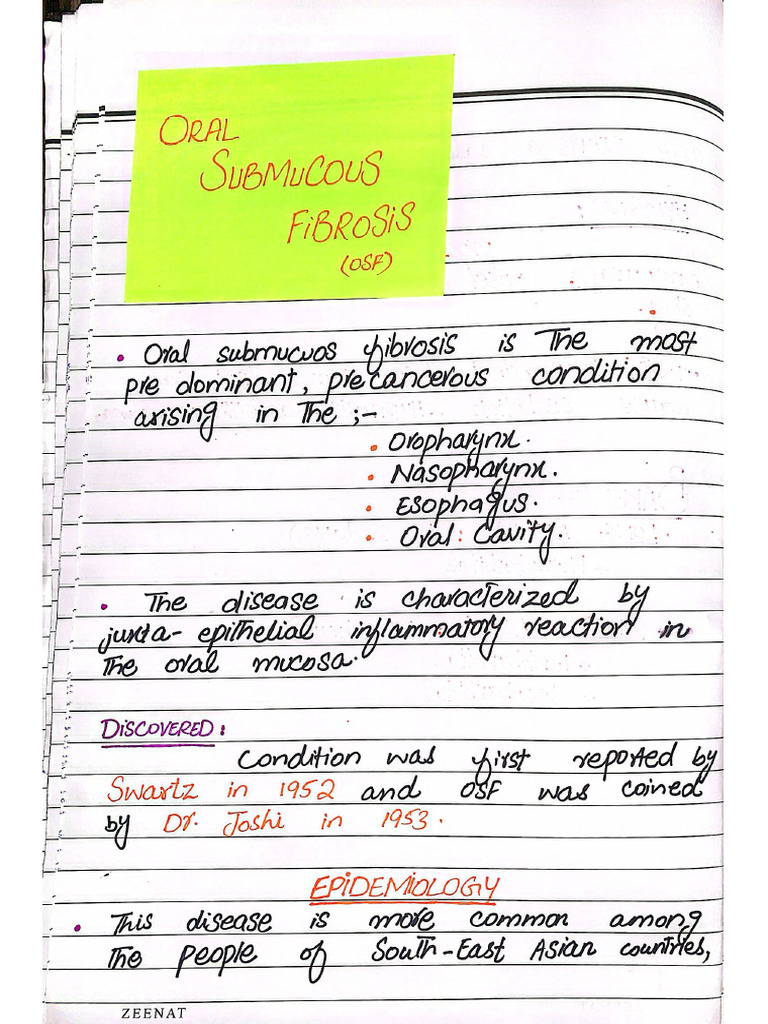 ORAL
SUBMUCOUS
FIBROSIS
(OSF)
• Oral submucuos fibrosis is The most
pre dominant, precancerous condition
arising in The ;-
• Oropharynx.
• Nasopharynx.
• Esophagus.
• Oral : Cavity.
• The disease is characterized by
juxta-epithelial inflammatory reaction in
The oral mucosa.
DISCOVERED :
Condition was first reported by
Swartz in 1952 and OSF was coined
by Dr. Joshi in 1953.
EPIDEMIOLOGY
• This disease is more common among
The people of South-East Asian countries,
ZEENAT